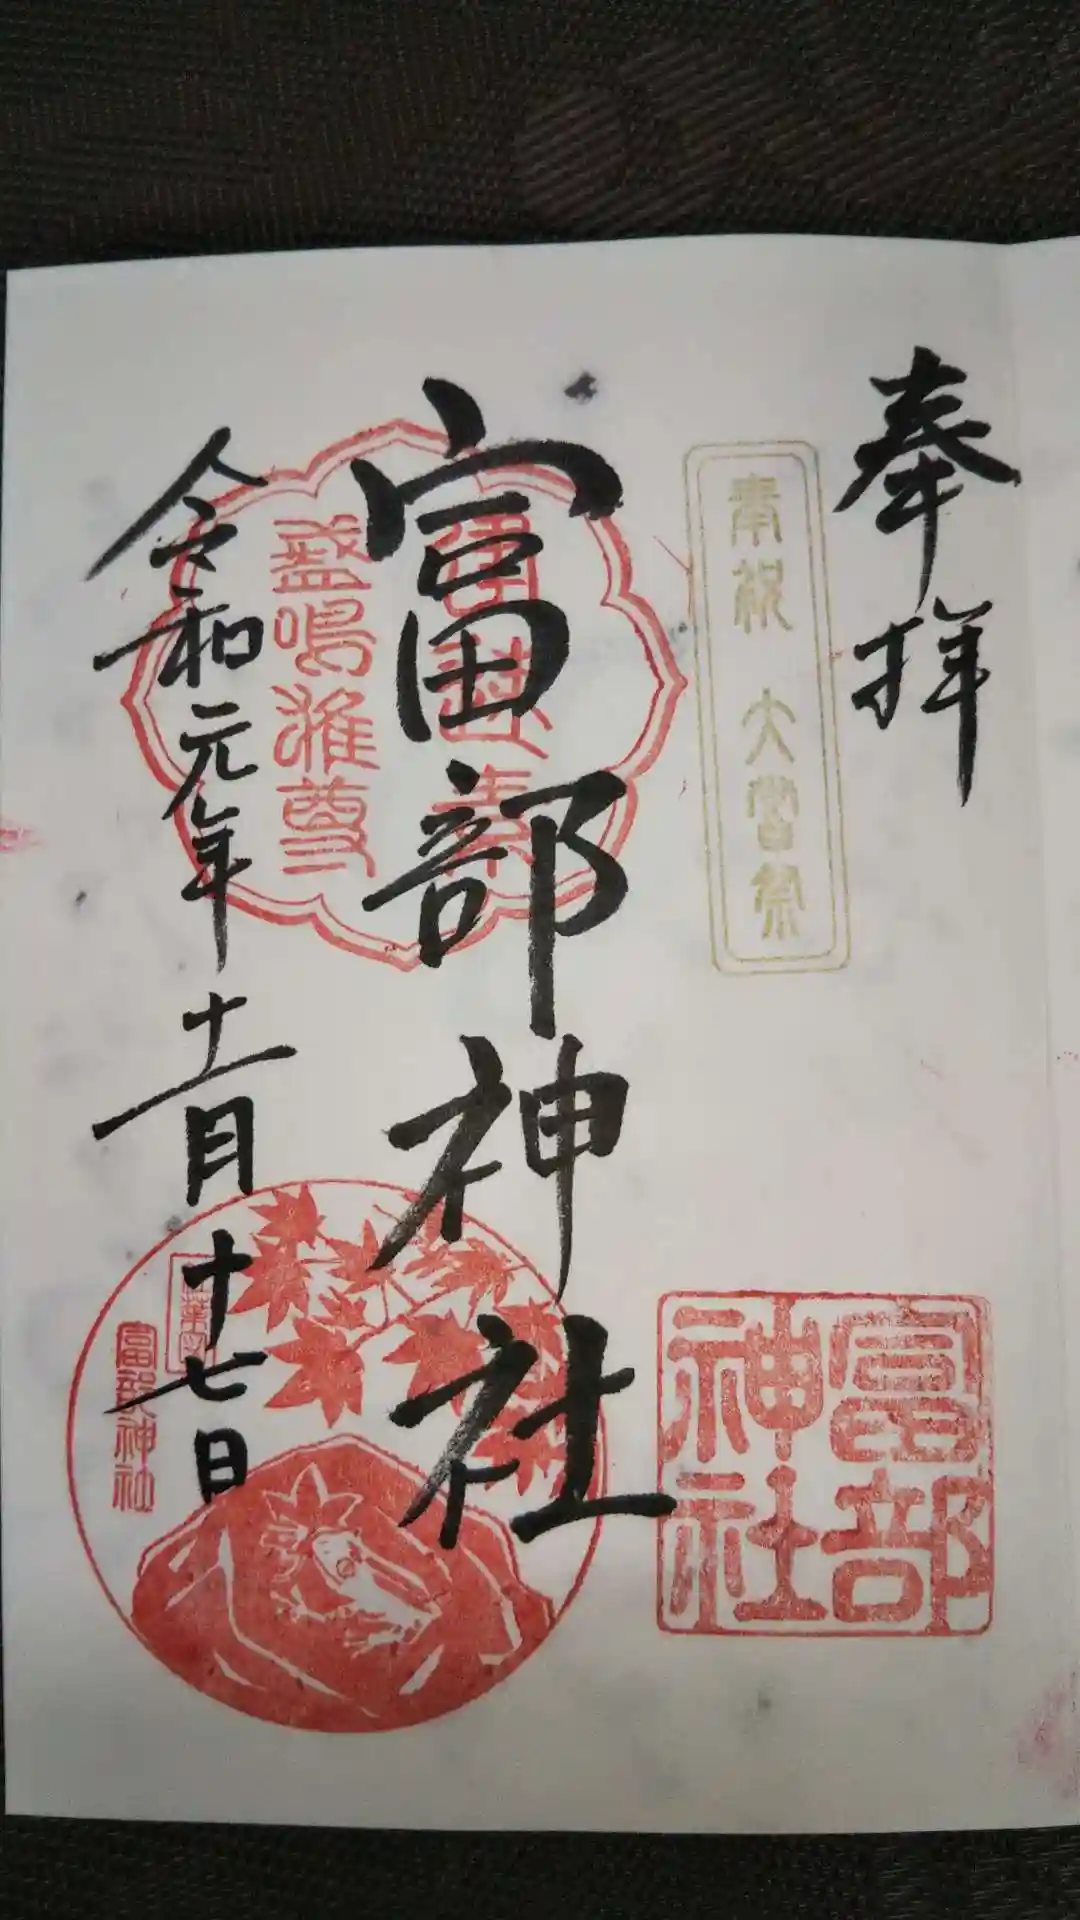 奉拝
奉祝 大嘗祭
富部神社
富部神社
盞嗚進尊
令和元年十一月十七日
富部神社